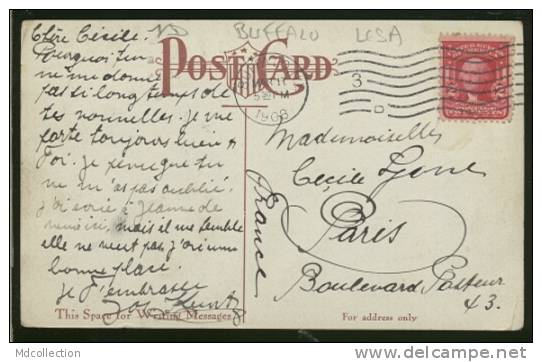 ND BUFFALO USA
POST CARD
1908
3
D
Chère Cécile.
Pourquoi
ne me donne
pas si long temps de
tes nouvelles. Je me
porte toujours bien et
Toi. Je pense que tu
ne m'as pas oublié.
J'ai écrit à Jeanne de
mais il me semble
elle ne veut pas
bonne place.
Je t'embrasse
This Space for Writing Messages
Mademoiselle
Cécile
Paris
Boulevard Pasteur
43.
France
For address only
Mdcollection
www.delcampe.net